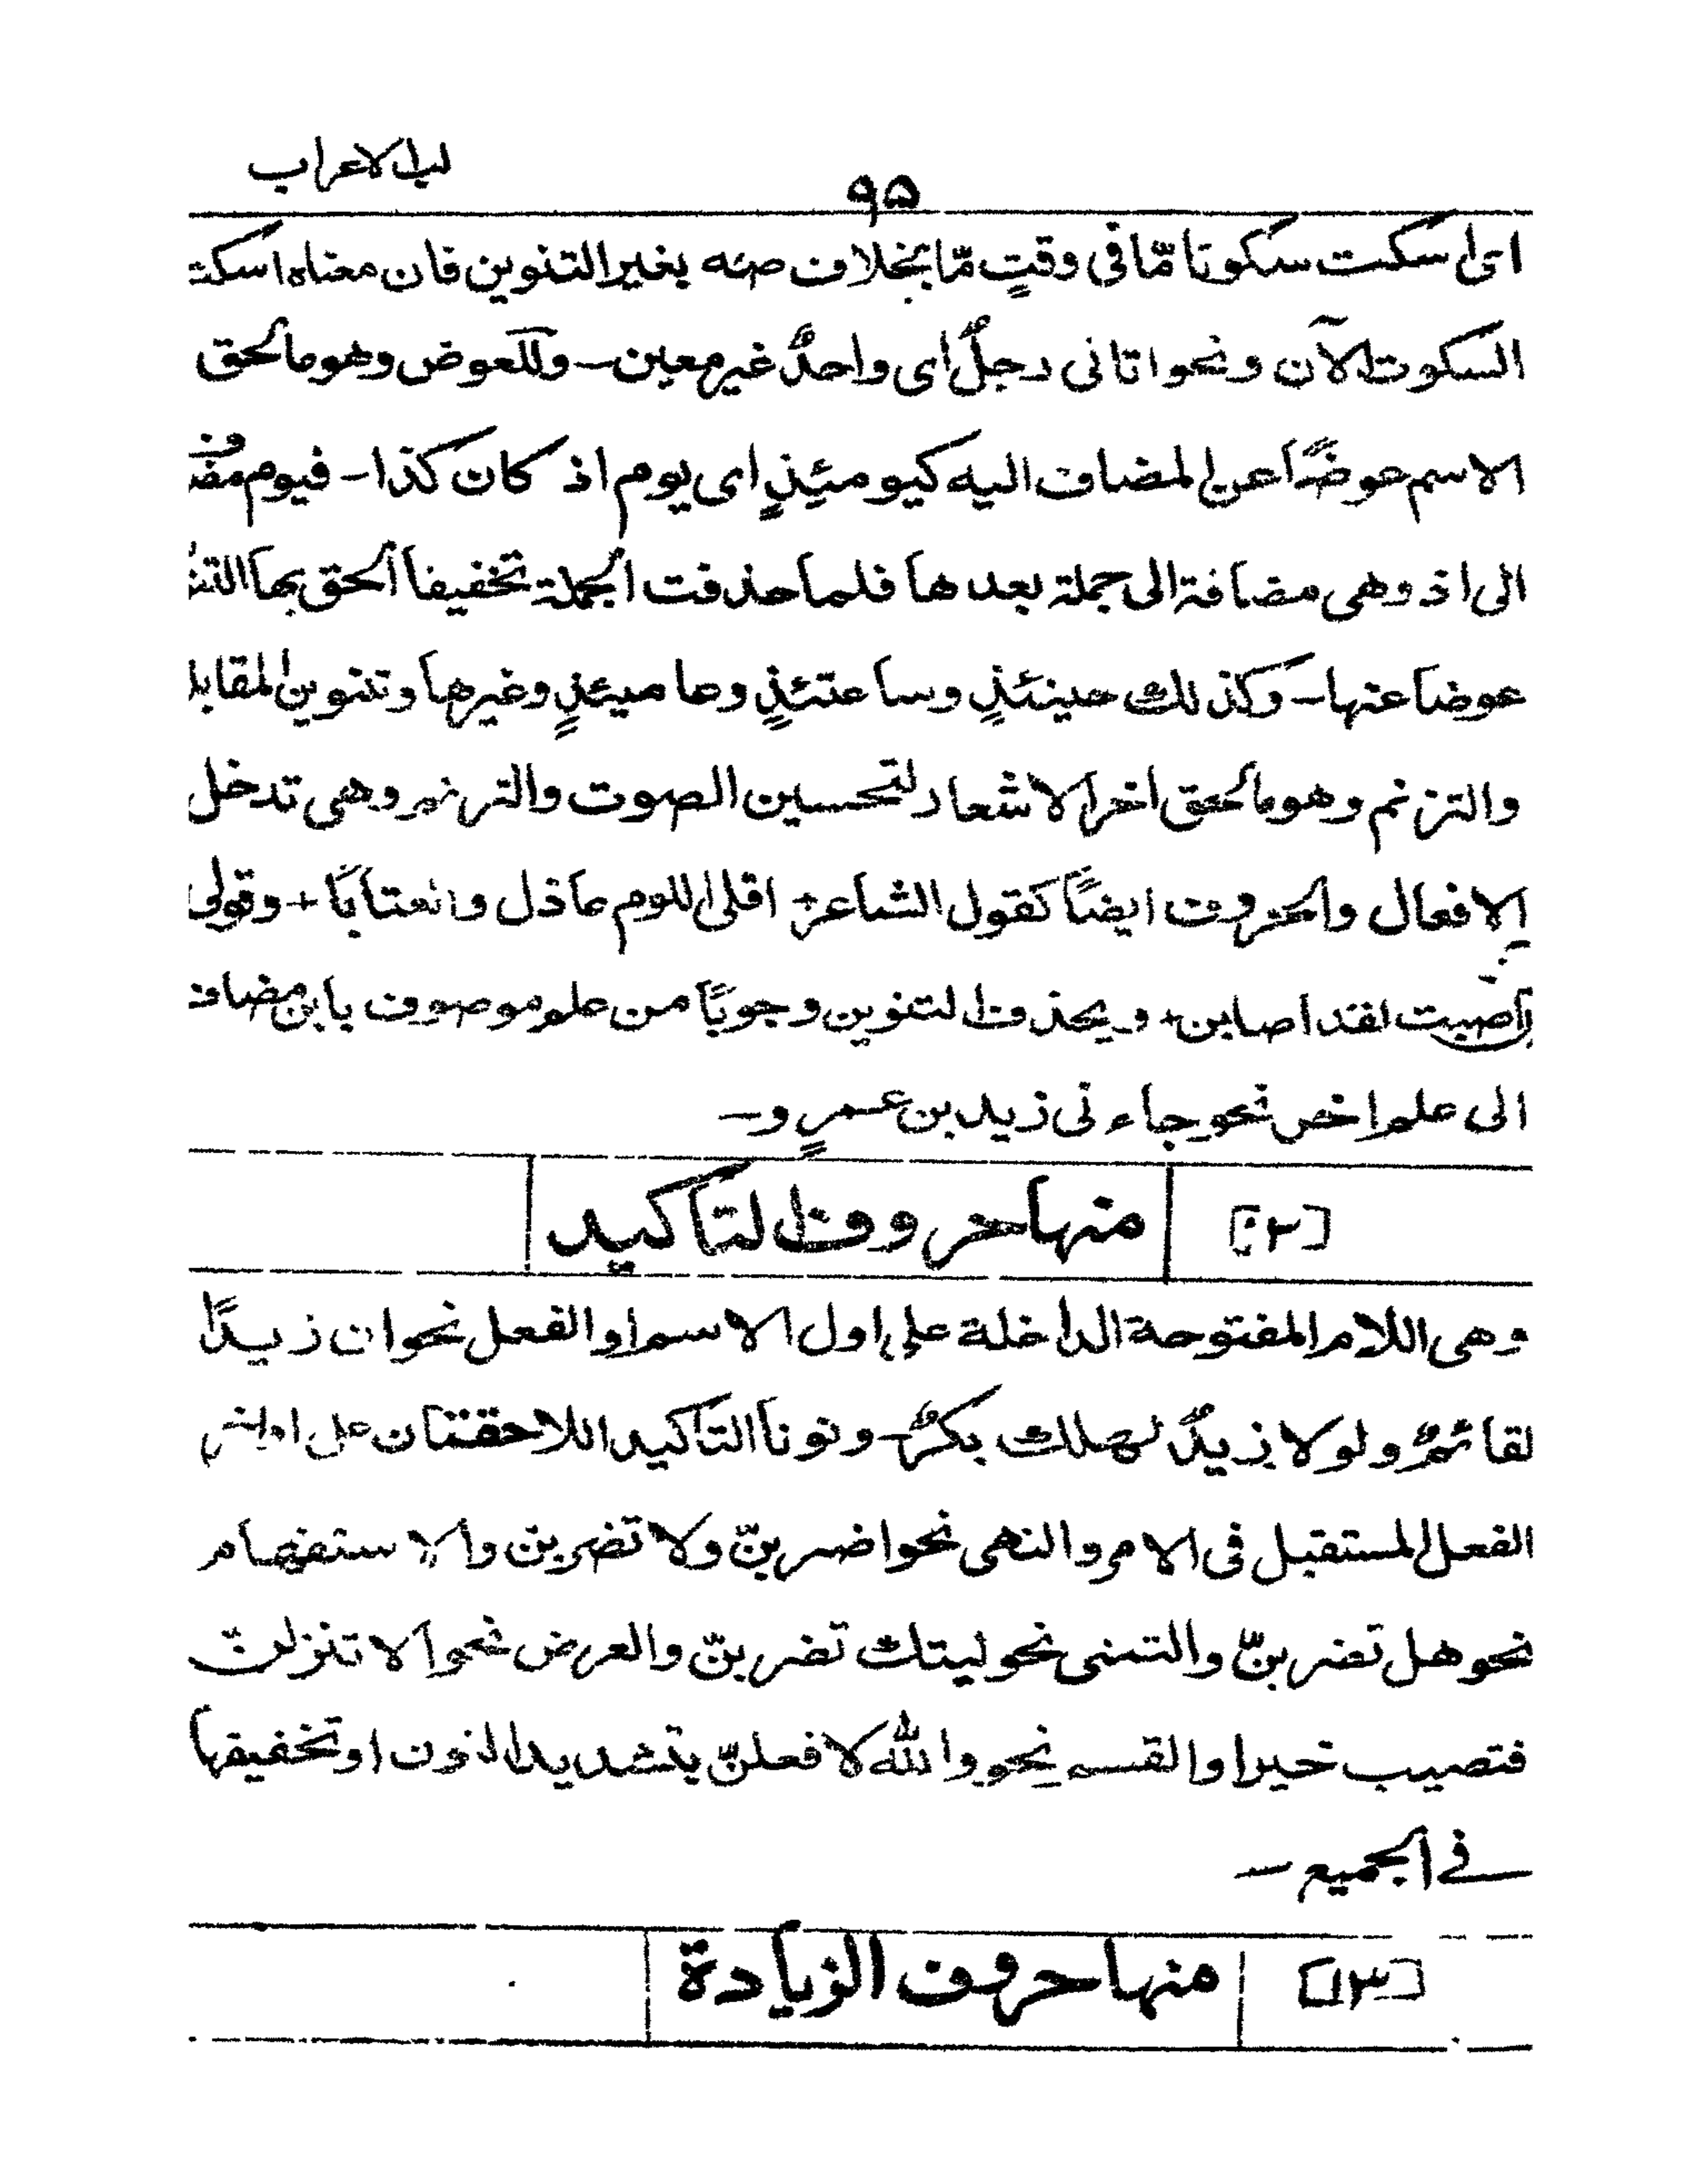 لب الاعراب
٩۵
اى اسكت سكوتا مّا فى وقتٍ مّا بخلاف صه بغير التنوين فان معناه اسكت
السكوت الآن ونحو اتانى رجلٌ اى واحدٌ غير معين ـ وللعوض وهو ما لحق
الاسم عوضًا عن المضاف اليه كيومئذٍ اى يوم اذ كان كذا ـ فيوم
الى اذ وهى مضافة الى جملة بعدها فلما حذفت الجملة تخفيفا الحق بها
عوضا عنها ـ وكذلك حينئذٍ وساعتئذٍ وعامئذٍ وغيرها وتنوين المقابلة
والترنم وهو ما لحق اخر الاشعار لتحسين الصوت والترنم وهى تدخل
الافعال والحروف ايضًا كقول الشاعر + اقلى اللوم عاذل والعتابًا + وقولى
ان اصبت لقد اصابن + ويحذف التنوين وجوبًا من علم موصوف بابن مضاف
الى علم اخر نحو جاءنى زيد بن عمرٍو ـ
[٣٠] منها حروف التاكيد
وهى اللام المفتوحة الداخلة على اول الاسم او الفعل نحو ان زيدًا
لقائمٌ ولولا زيدٌ لهلك بكرٌ ـ ونونا التاكيد اللاحقتان على اواخر
الفعل المستقبل فى الامر والنهى نحو اضربنّ ولا تضربن والاستفهام
نحو هل تضربنّ والتمنى نحو ليتك تضربنّ والعرض نحو الا تنزلنّ
فتصيب خيرا والقسم نحو والله لافعلنّ بتشديد النون او تخفيفها
فى الجميع ـ
[٣١] منها حروف الزيادة